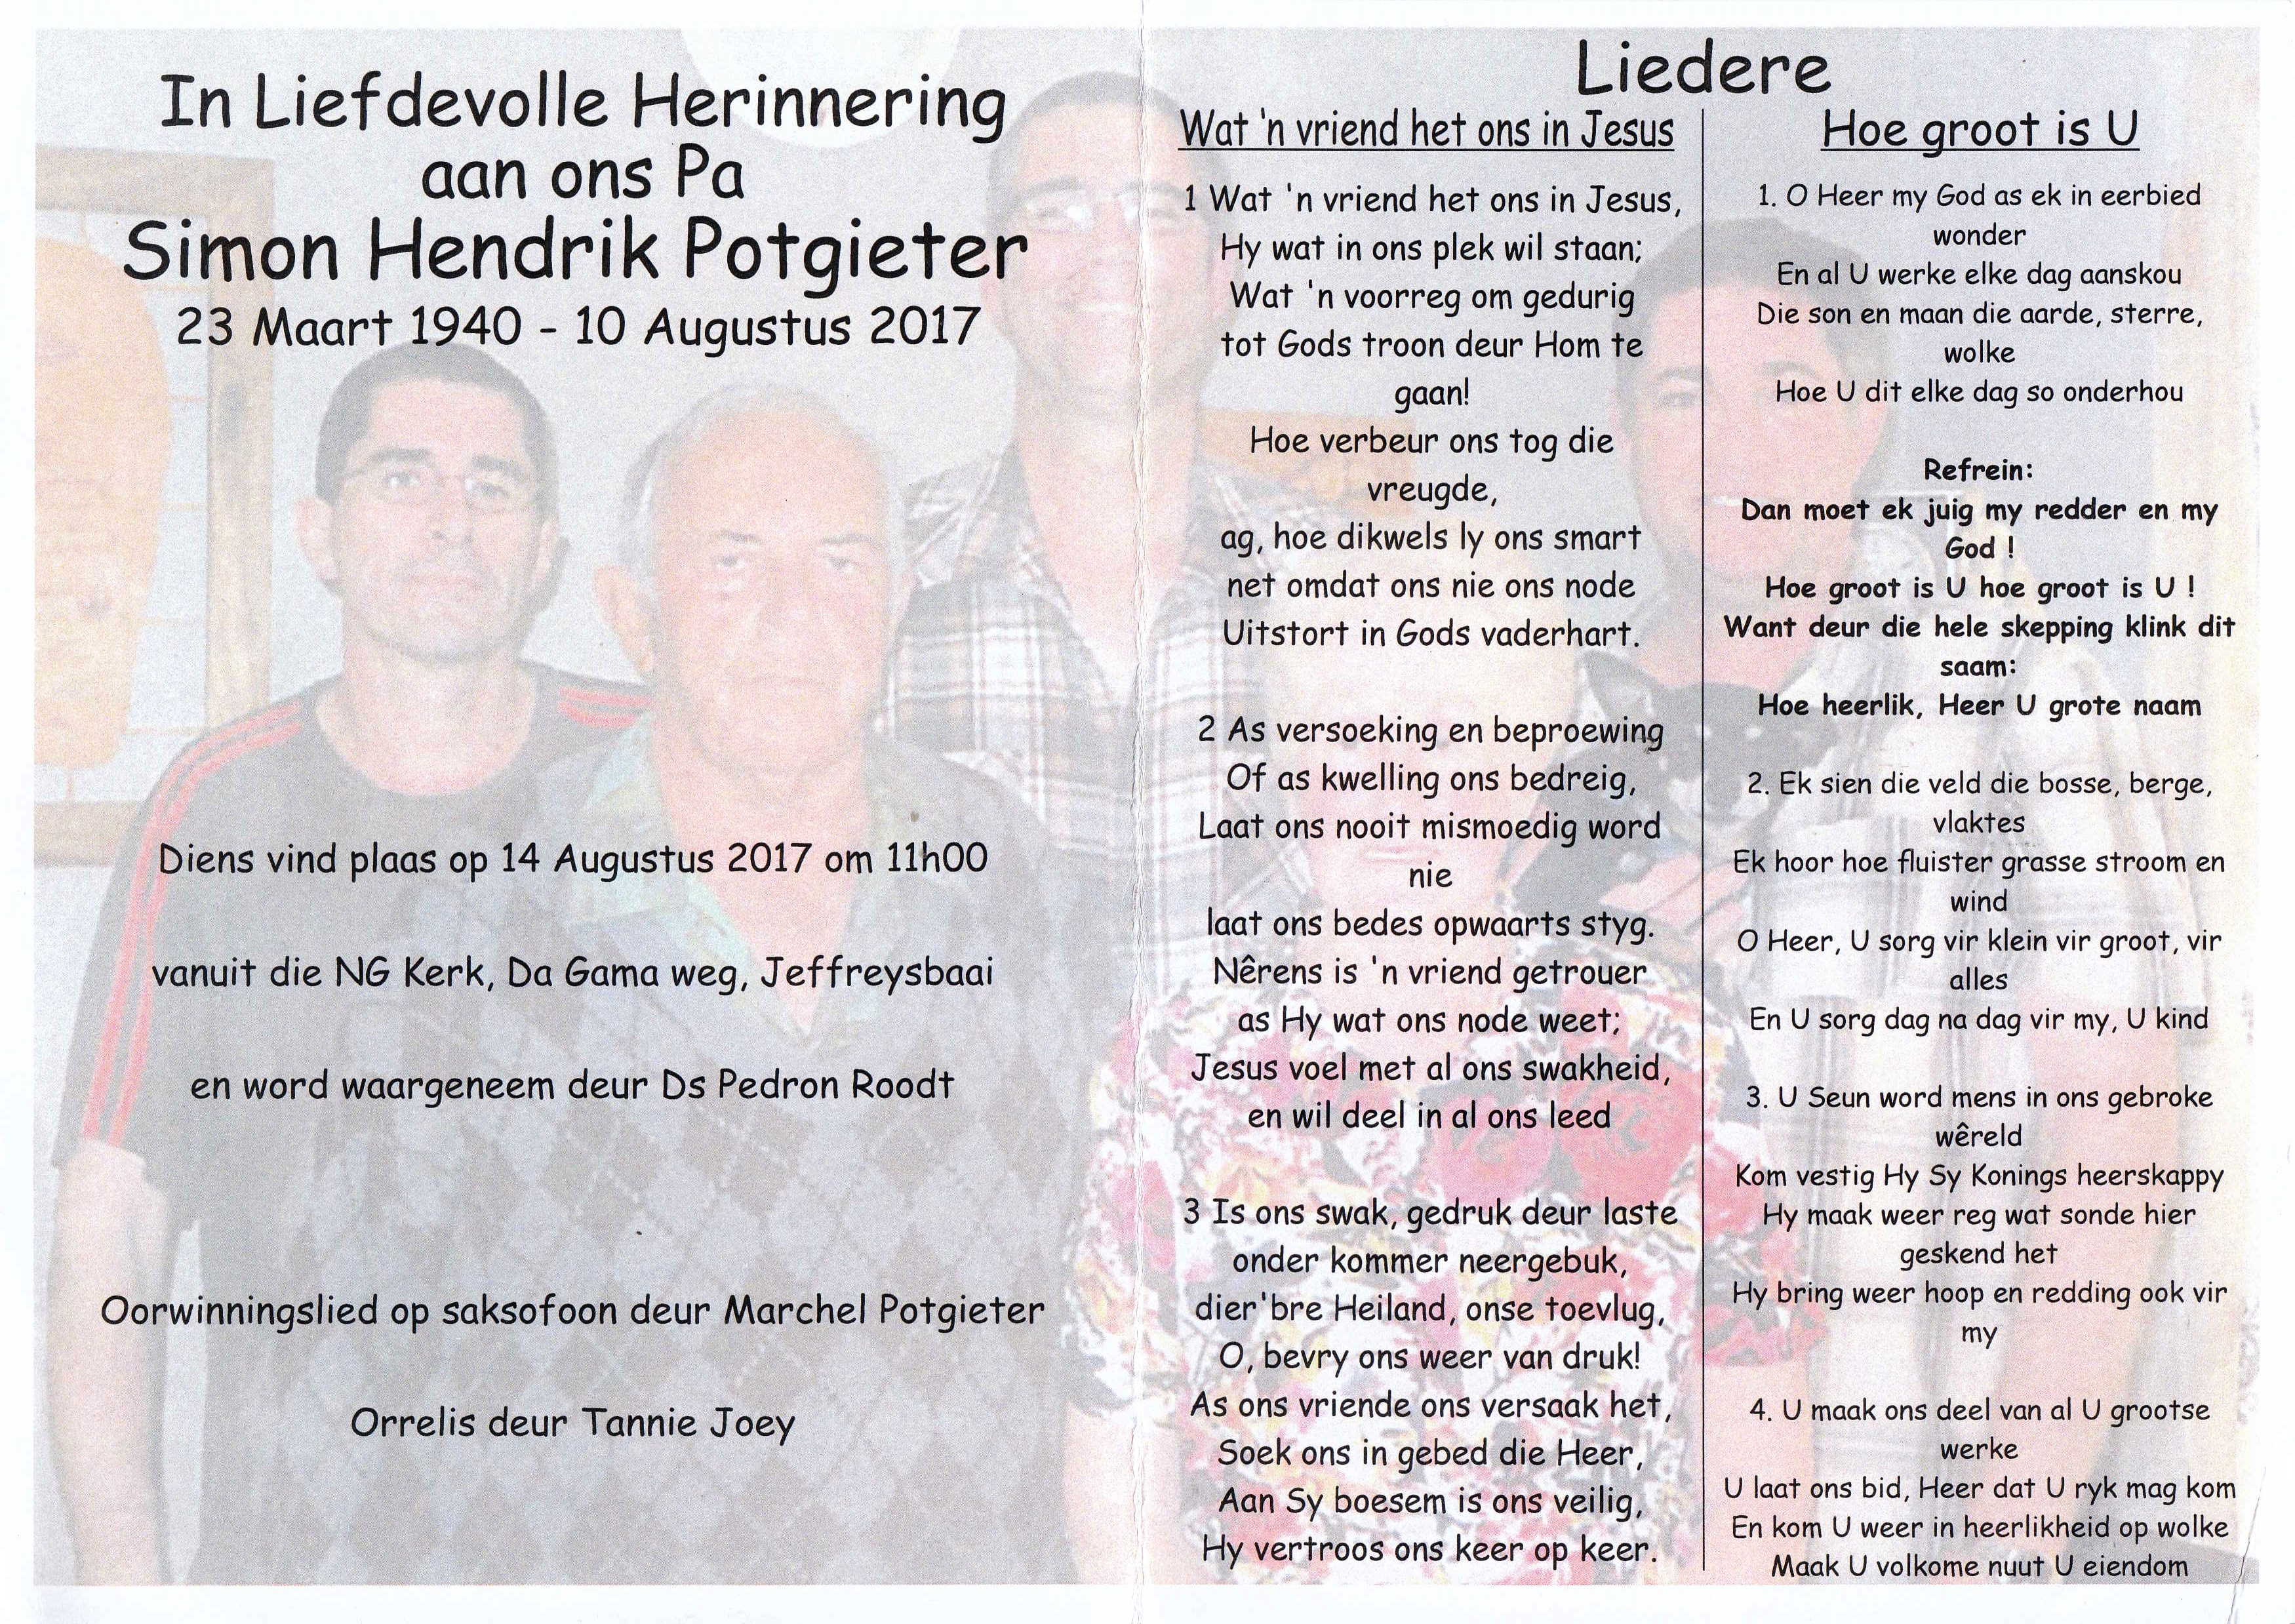 In Liefdevolle Herinnering
aan ons Pa
Simon Hendrik Potgieter
23 Maart 1940 - 10 Augustus 2017
Diens vind plaas op 14 Augustus 2017 om 11h00
vanuit die NG Kerk, Da Gama weg, Jeffreysbaai
en word waargeneem deur Ds Pedron Roodt
Oorwinningslied op saksofoon deur Marchel Potgieter
Orrelis deur Tannie Joey
Liedere
Wat 'n vriend het ons in Jesus
1 Wat 'n vriend het ons in Jesus,
Hy wat in ons plek wil staan;
Wat 'n voorreg om gedurig
tot Gods troon deur Hom te
gaan!
Hoe verbeur ons tog die
vreugde,
ag, hoe dikwels ly ons smart
net omdat ons nie ons node
Uitstort in Gods vaderhart.
2 As versoeking en beproewing
Of as kwelling ons bedreig,
Laat ons nooit mismoedig word
nie
laat ons bedes opwaarts styg.
Nêrens is 'n vriend getrouer
as Hy wat ons node weet;
Jesus voel met al ons swakheid,
en wil deel in al ons leed
3 Is ons swak, gedruk deur laste
onder kommer neergebuk,
dier'bre Heiland, onse toevlug,
O, bevry ons weer van druk!
As ons vriende ons versaak het,
Soek ons in gebed die Heer,
Aan Sy boesem is ons veilig,
Hy vertroos ons keer op keer.
Hoe groot is U
1. O Heer my God as ek in eerbied
wonder
En al U werke elke dag aanskou
Die son en maan die aarde, sterre,
wolke
Hoe U dit elke dag so onderhou
Refrein:
Dan moet ek juig my redder en my
God !
Hoe groot is U hoe groot is U !
Want deur die hele skepping klink dit
saam:
Hoe heerlik, Heer U grote naam
2. Ek sien die veld die bosse, berge,
vlaktes
Ek hoor hoe fluister grasse stroom en
wind
O Heer, U sorg vir klein vir groot, vir
alles
En U sorg dag na dag vir my, U kind
3. U Seun word mens in ons gebroke
wêreld
Kom vestig Hy Sy Konings heerskappy
Hy maak weer reg wat sonde hier
geskend het
Hy bring weer hoop en redding ook vir
my
4. U maak ons deel van al U grootse
werke
U laat ons bid, Heer dat U ryk mag kom
En kom U weer in heerlikheid op wolke
Maak U volkome nuut U eiendom